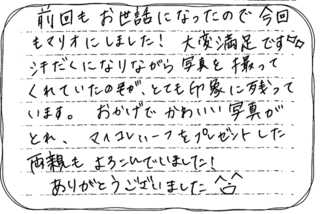 前回もお世話になったので今回
もマリオにしました! 大変満足です☆☆
汗だくになりながら写真を撮って
くれていたのが、とても印象に残って
います。 おかげでかわいい写真が
とれ、マイコレ をプレゼントした
両親もよろこんでいました!
ありがとうございました ^^